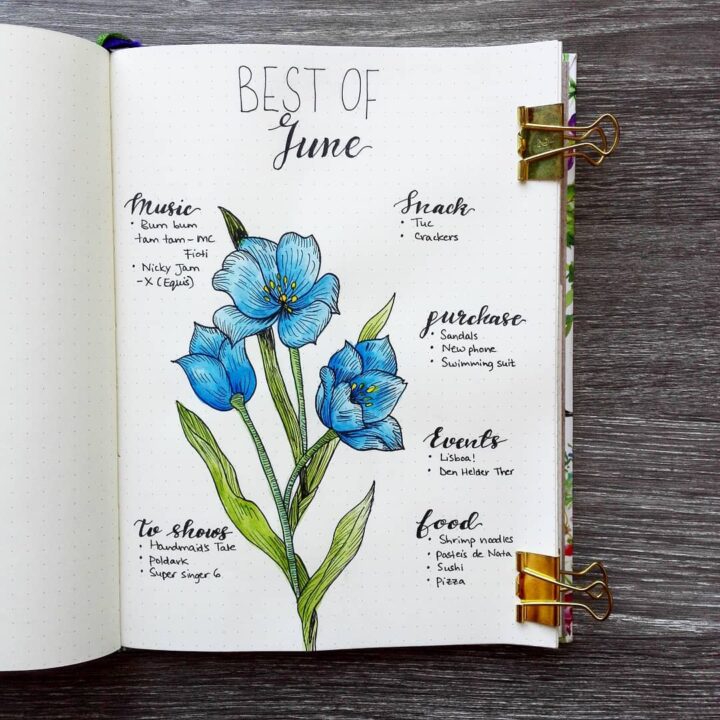 BEST OF
June
Music
• Bum bum
tam tam - MC
Fioti
• Nicky Jam
- X (Equis)
Snack
• Tuc
• Crackers
purchase
• Sandals
• New phone
• Swimming suit
Events
• Lisboa!
• Den Helder Ther
tv shows
• Handmaid's Tale
• Poldark
• Super singer 6
food
• Shrimp noodles
• pasteis de Nata
• Sushi
• Pizza